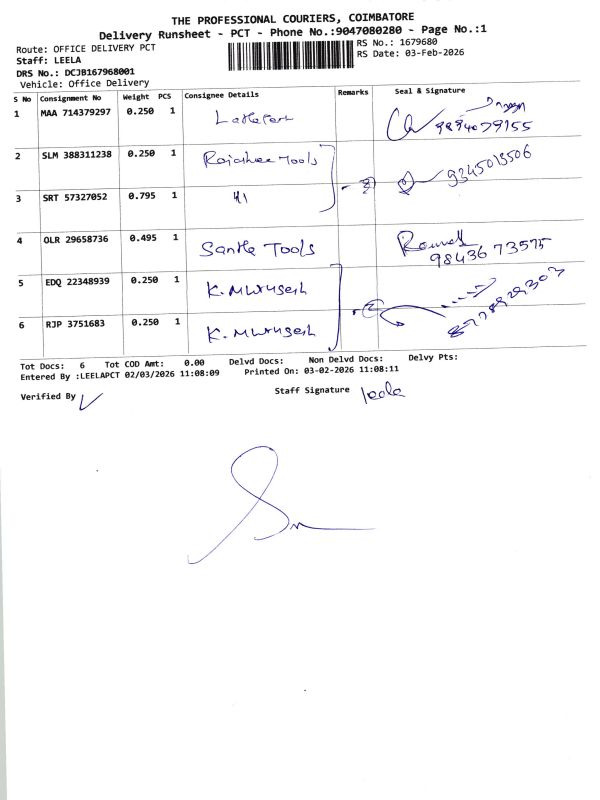 THE PROFESSIONAL COURIERS, COIMBATORE
Delivery Runsheet - PCT - Phone No.:9047080280 - Page No.:1
Route: OFFICE DELIVERY PCT
RS No.: 1679680
Staff: LEELA
RS Date: 03-Feb-2026
DRS No.: DCJB167968001
Vehicle: Office Delivery
S No Consignment No Weight PCS Consignee Details Remarks Seal & Signature
1 MAA 714379297 0.250 1 9894079155
2 SLM 388311238 0.250 1 Tools 9345013506
3 SRT 57327052 0.795 1
4 OLR 29658736 0.495 1 Tools 98436 73575
5 EDQ 22348939 0.250 1 K. Murugesh
6 RJP 3751683 0.250 1 K. Murugesh
Tot Docs: 6 Tot COD Amt: 0.00 Delvd Docs: Non Delvd Docs: Delvy Pts:
Entered By :LEELAPCT 02/03/2026 11:08:09 Printed On: 03-02-2026 11:08:11
Verified By
Staff Signature leela